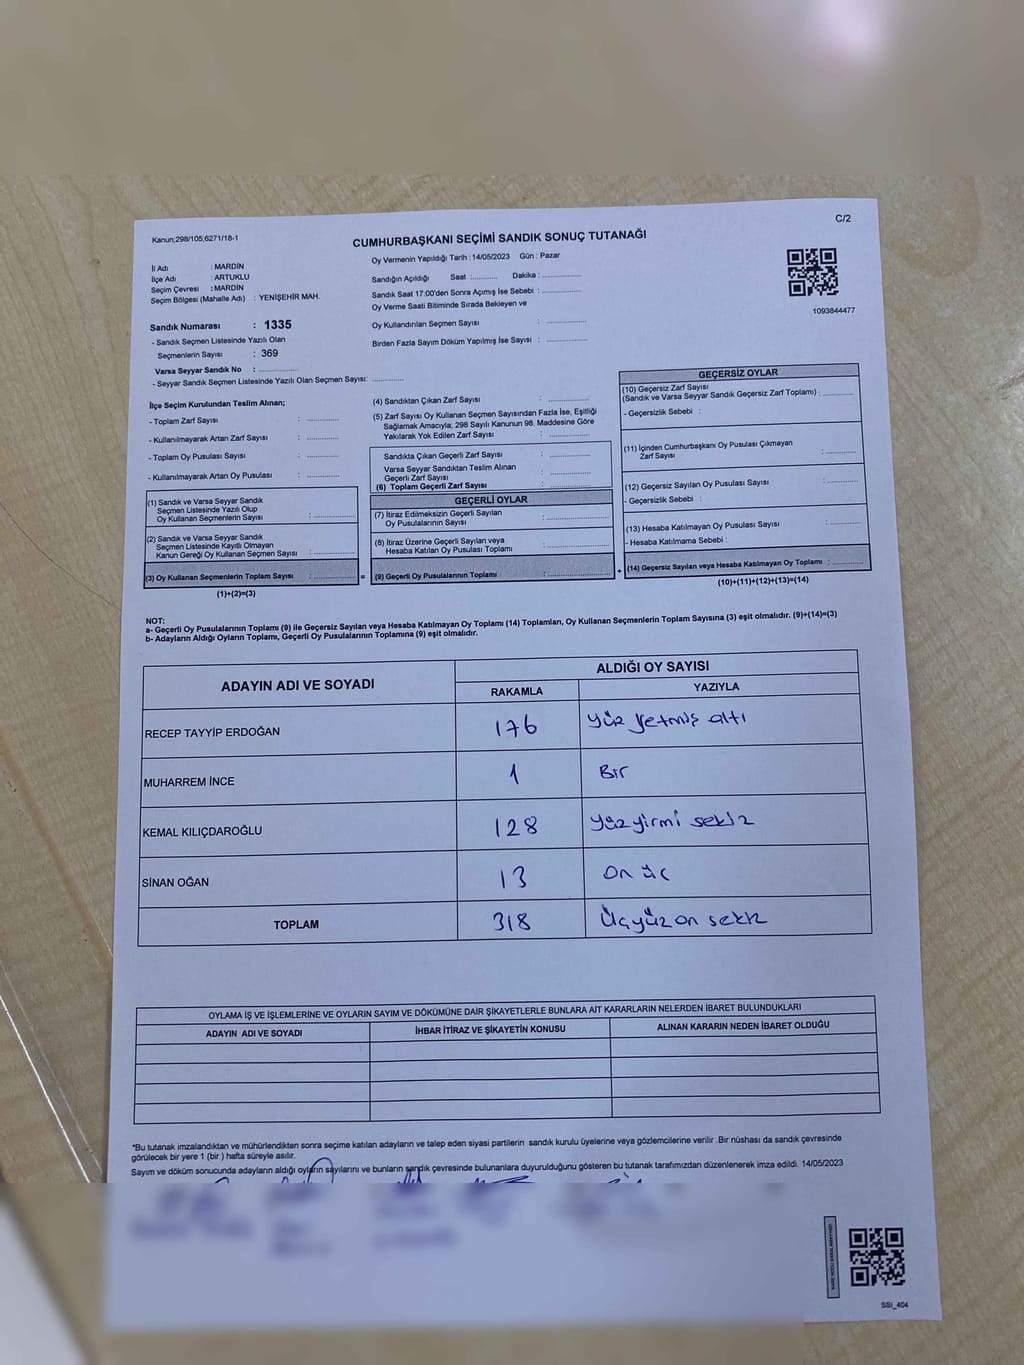 C/2
Kanun;298/105;6271/18-1
CUMHURBAŞKANI SEÇİMİ SANDIK SONUÇ TUTANAĞI
İl Adı : MARDİN
İlçe Adı : ARTUKLU
Seçim Çevresi : MARDİN
Seçim Bölgesi (Mahalle Adı) : YENİŞEHİR MAH.
Sandık Numarası : 1335
- Sandık Seçmen Listesinde Yazılı Olan
Seçmenlerin Sayısı : 369
Varsa Seyyar Sandık No :
- Seyyar Sandık Seçmen Listesinde Yazılı Olan Seçmen Sayısı:
Oy Vermenin Yapıldığı Tarih : 14/05/2023 Gün : Pazar
Sandığın Açıldığı Saat : Dakika :
Sandık Saat 17:00'den Sonra Açımış İse Sebebi :
Oy Verme Saati Bitiminde Sırada Bekleyen ve
Oy Kullandırılan Seçmen Sayısı :
Birden Fazla Sayım Döküm Yapılmış İse Sayısı :
1093844477
İlçe Seçim Kurulundan Teslim Alınan;
- Toplam Zarf Sayısı :
- Kullanılmayarak Artan Zarf Sayısı :
- Toplam Oy Pusulası Sayısı :
- Kullanılmayarak Artan Oy Pusulası :
(1) Sandık ve Varsa Seyyar Sandık
Seçmen Listesinde Yazılı Olup
Oy Kullanan Seçmenlerin Sayısı :
(2) Sandık ve Varsa Seyyar Sandık
Seçmen Listesinde Kayıtlı Olmayan
Kanun Gereği Oy Kullanan Seçmen Sayısı :
(3) Oy Kullanan Seçmenlerin Toplam Sayısı : =
(1)+(2)=(3)
(4) Sandıktan Çıkan Zarf Sayısı :
(5) Zarf Sayısı Oy Kullanan Seçmen Sayısından Fazla İse, Eşitliği
Sağlamak Amacıyla, 298 Sayılı Kanunun 98. Maddesine Göre
Yakılarak Yok Edilen Zarf Sayısı :
Sandıkta Çıkan Geçerli Zarf Sayısı :
Varsa Seyyar Sandıktan Teslim Alınan
Geçerli Zarf Sayısı :
(6) Toplam Geçerli Zarf Sayısı :
GEÇERLİ OYLAR
(7) İtiraz Edilmeksizin Geçerli Sayılan
Oy Pusulalarının Sayısı :
(8) İtiraz Üzerine Geçerli Sayılan veya
Hesaba Katılan Oy Pusulası Toplamı :
(9) Geçerli Oy Pusulalarının Toplamı : +
GEÇERSİZ OYLAR
(10) Geçersiz Zarf Sayısı
(Sandık ve Varsa Seyyar Sandık Geçersiz Zarf Toplamı) :
- Geçersizlik Sebebi :
(11) İçinden Cumhurbaşkanı Oy Pusulası Çıkmayan
Zarf Sayısı :
(12) Geçersiz Sayılan Oy Pusulası Sayısı :
- Geçersizlik Sebebi :
(13) Hesaba Katılmayan Oy Pusulası Sayısı :
- Hesaba Katılmama Sebebi :
(14) Geçersiz Sayılan veya Hesaba Katılmayan Oy Toplamı :
(10)+(11)+(12)+(13)=(14)
NOT:
a- Geçerli Oy Pusulalarının Toplamı (9) ile Geçersiz Sayılan veya Hesaba Katılmayan Oy Toplamı (14) Toplamları, Oy Kullanan Seçmenlerin Toplam Sayısına (3) eşit olmalıdır. (9)+(14)=(3)
b- Adayların Aldığı Oyların Toplamı, Geçerli Oy Pusulalarının Toplamına (9) eşit olmalıdır.
ADAYIN ADI VE SOYADI ALDIĞI OY SAYISI
RAKAMLA YAZIYLA
RECEP TAYYİP ERDOĞAN 176 Yüz Yetmiş altı
MUHARREM İNCE 1 Bir
KEMAL KILIÇDAROĞLU 128 Yüz yirmi sekiz
SİNAN OĞAN 13 On üç
TOPLAM 318 Üçyüz on sekiz
OYLAMA İŞ VE İŞLEMLERİNE VE OYLARIN SAYIM VE DÖKÜMÜNE DAİR ŞİKAYETLERLE BUNLARA AİT KARARLARIN NELERDEN İBARET BULUNDUKLARI
ADAYIN ADI VE SOYADI İHBAR İTİRAZ VE ŞİKAYETİN KONUSU ALINAN KARARIN NEDEN İBARET OLDUĞU
*Bu tutanak imzalandıktan ve mühürlendikten sonra seçime katılan adayların ve talep eden siyasi partilerin sandık kurulu üyelerine veya gözlemcilerine verilir .Bir nüshası da sandık çevresinde
görülecek bir yere 1 (bir ) hafta süreyle asılır.
Sayım ve döküm sonucunda adayların aldığı oyların sayılarını ve bunların sandık çevresinde bulunanlara duyurulduğunu gösteren bu tutanak tarafımızdan düzenlenerek imza edildi. 14/05/2023
SSI_404